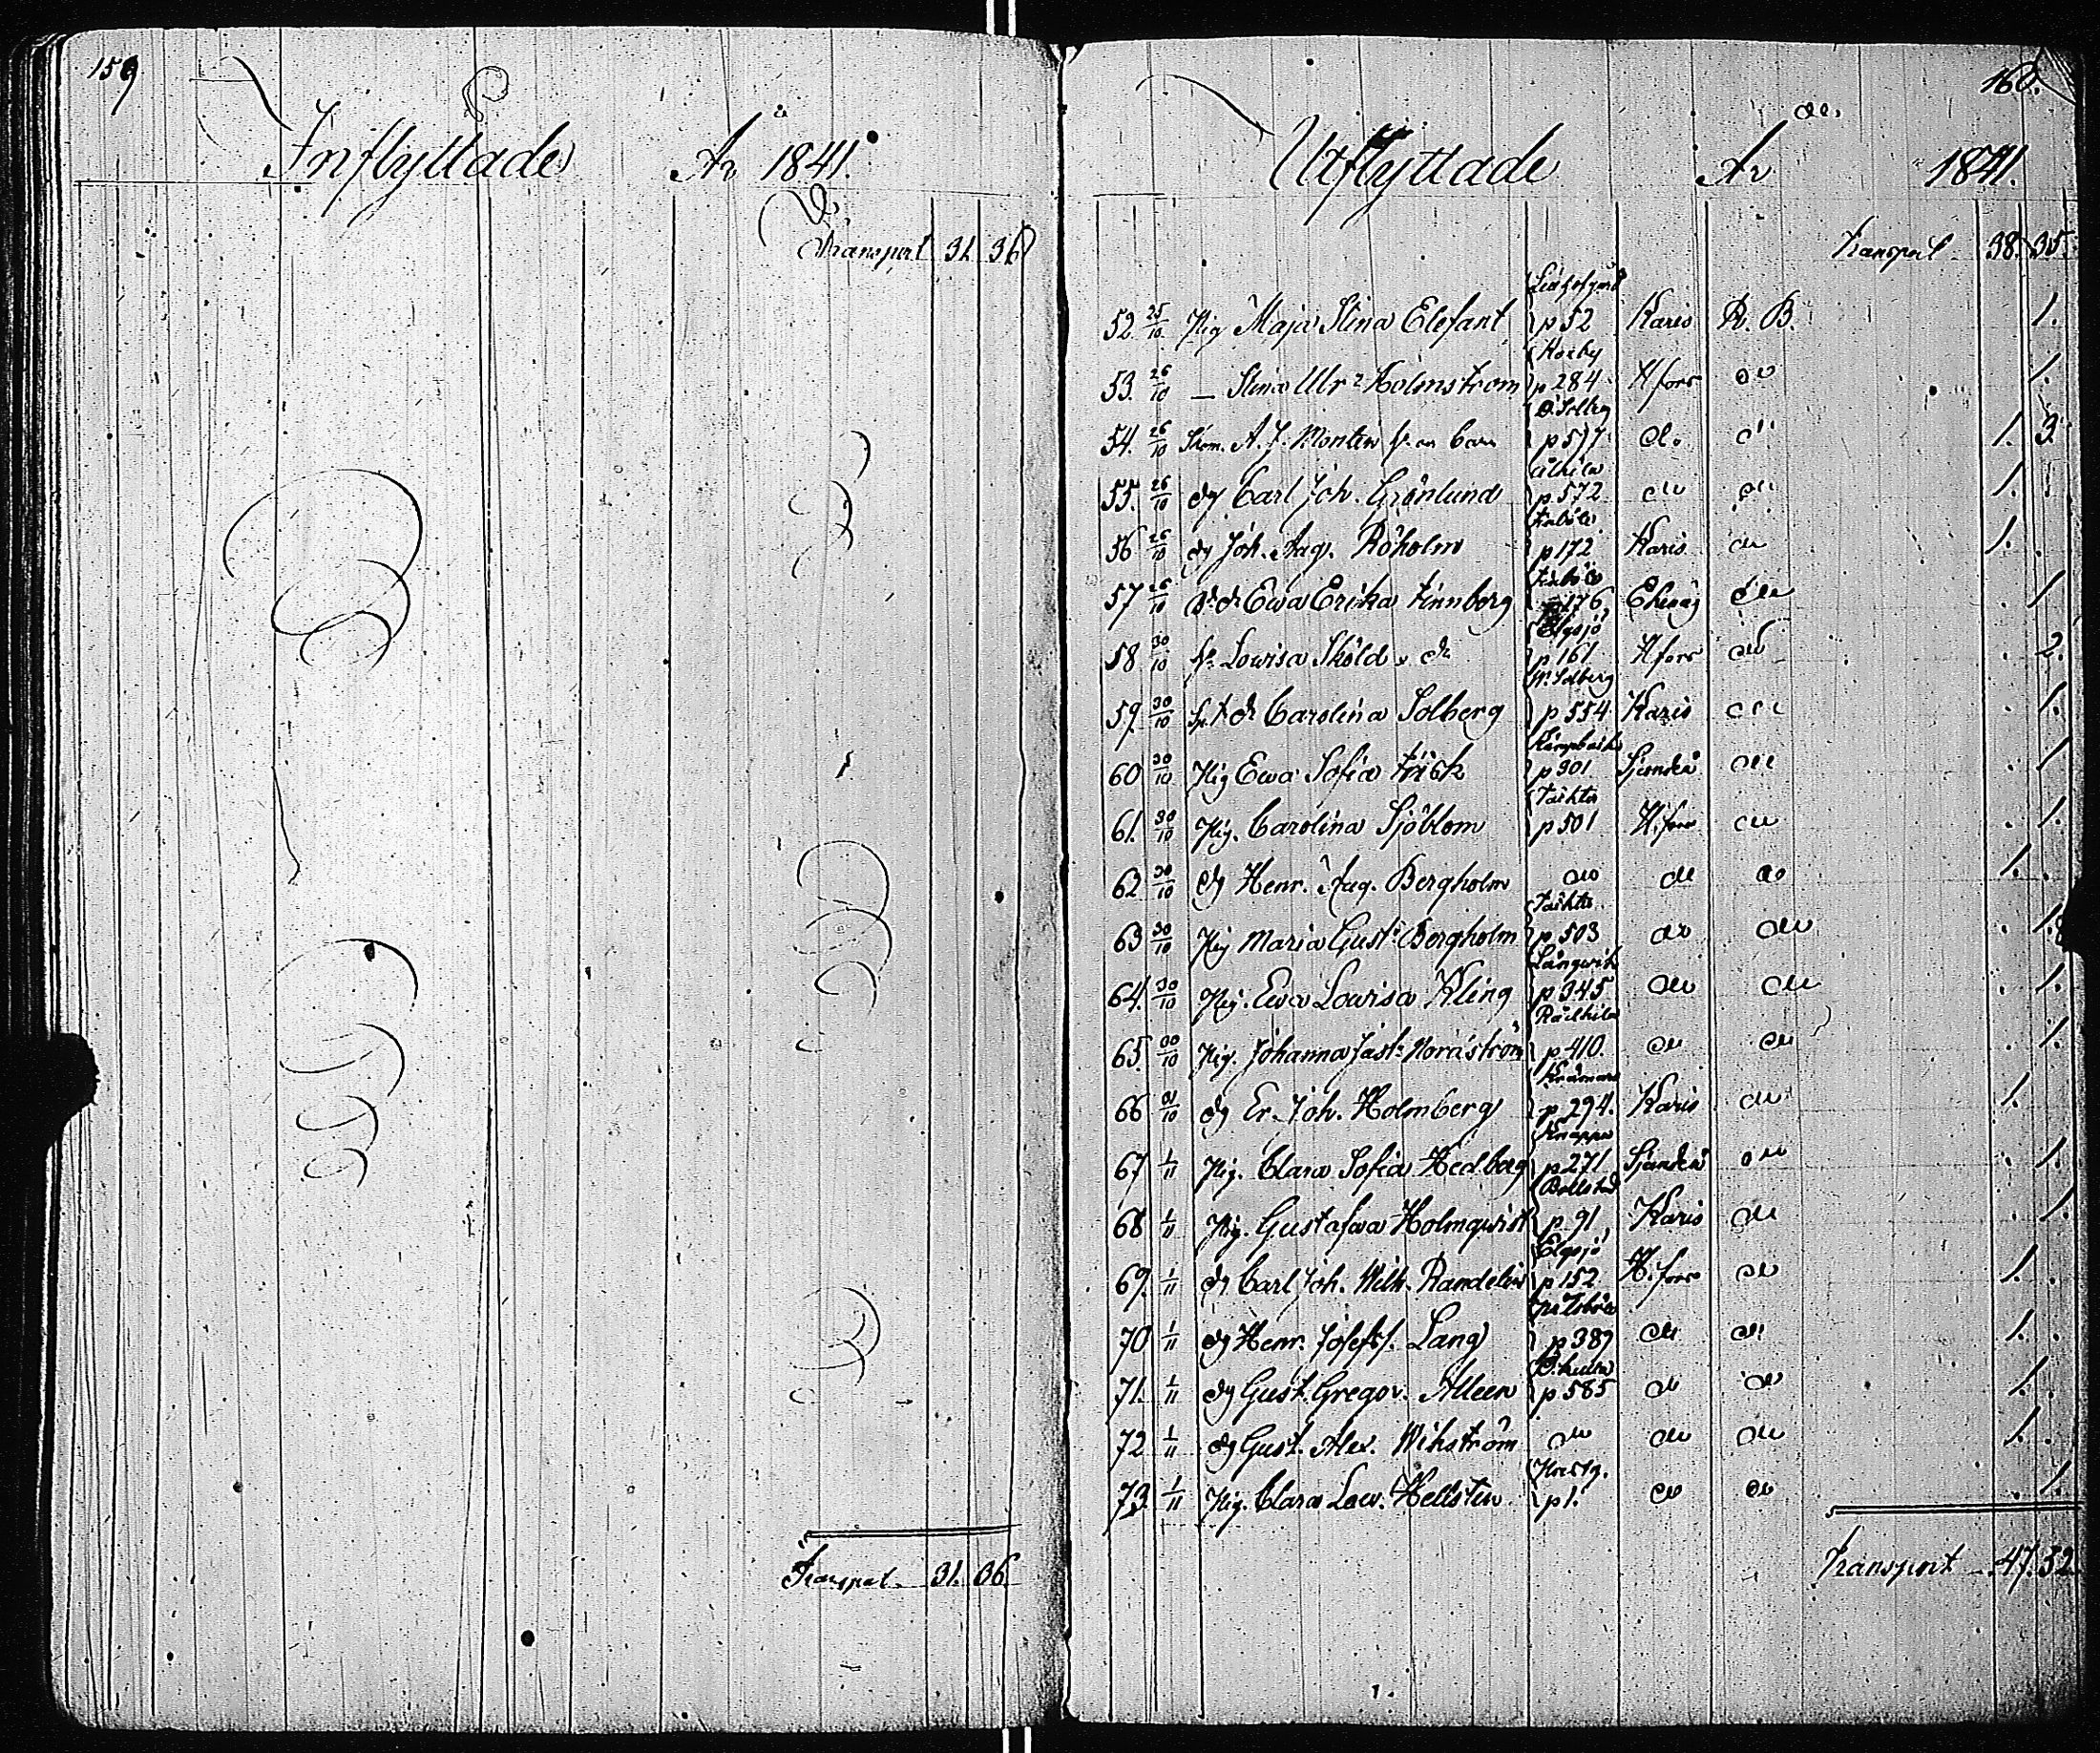 159
Inflyttade År 1841.
Transport 31 36
Transport 31. 36.
160.
Utflyttade År 1841.
Transport 38. 35.
52. 25/10. Pig Maja Stina Elefant p 52 Karis K. B. 1.
Koxby
53. 26/10 — Stina Ulr. Holmström p 284 Hfors do 1.
Ö. Solbg
54. 26/10 A. J. Montin p 577 do do 1. 3.
55. 26/10 dg Carl Joh. Grönlund p 572 do do 1.
Finböle
56 26/10 dg Joh. Aug. Röholm p 172 Karis do 1.
Finböle
57 26/10 Ewa Erika Finnberg 176 Ekenäs do 1
Elgsjö
58 30/10 Lowisa Sköld p 161 Hfors do 2.
W. Solberg
59. 30/10 Carolina Solberg p 554 Karis do 1.
60 30/10 Pig Ewa Sofia Frisk p 301 Sjundeå do 1
Täkter
61. 30/10 Pig. Carolina Sjöblom p 501 H.fors do 1.
62 30/10 dg Henr. Aug. Bergholm do do do 1.
Täkter
63 30/10 Pig Maria Gust. Bergholm p 503 do do 1.
Långwik
64. 30/10 Pig. Ewa Lowisa Kling p 345 do do 1.
65. 30/10 Pig. Johanna Just. Norrström p 410. do do 1.
66 31/10 dg Er. Joh. Holmberg p 294. Karis do 1.
Knapps
67 1/11 Pig. Clara Sofia Hedberg p 271 Sjundeå do 1.
Bollstad
68 1/11 Pig. Gustafwa Holmqwist p 91 Karis do 1.
Elgsjö
69. 1/11 dg Carl Joh. Wilh. Randelin p 152 H.fors do 1.
70 1/11 dg Henr. Josefss. Lang p 389 do do 1.
71. 1/11 dg Gust. Gregor. Alleen p 585 do do 1.
72 1/11 dg Gust. Alex. Wikström do do do 1.
73. 1/11 Pig. Clara Low. Hellsten p 1. do do 1.
Transport 47. 52